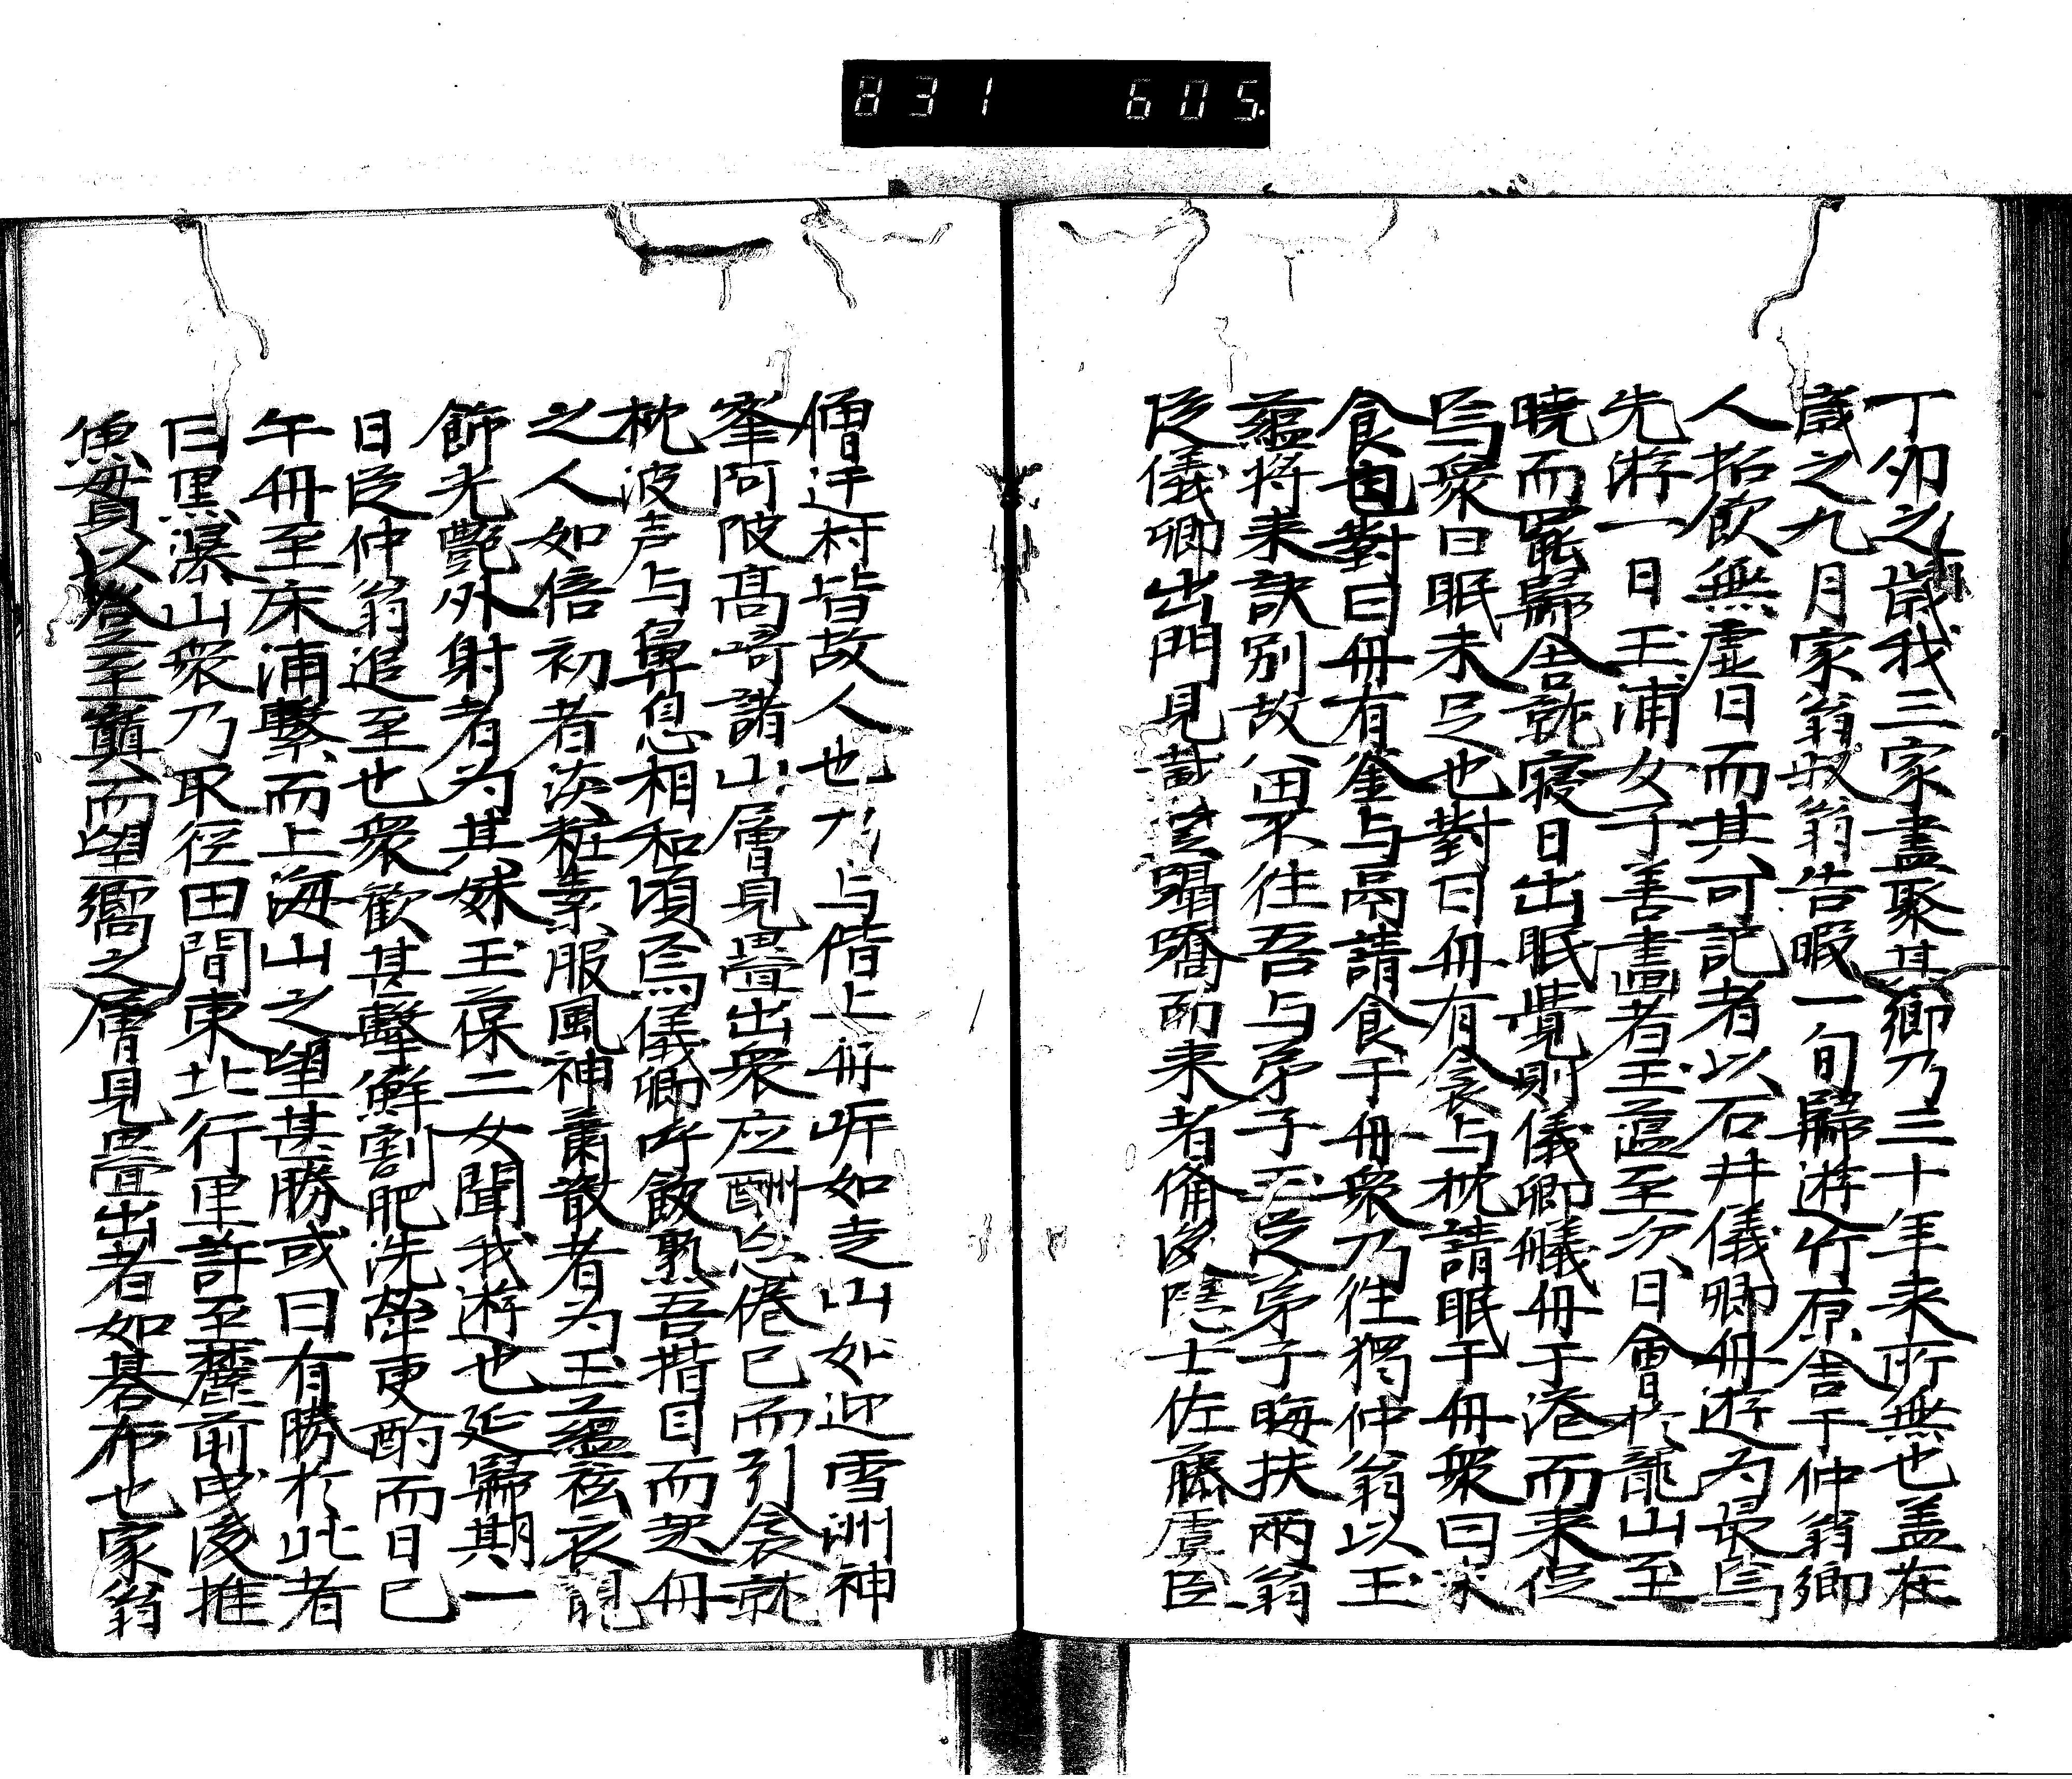 831 605.
丁夘之歳我三家盡聚其郷乃三十年来所無也盖在
歳之九月家翁叔翁告暇一旬歸遊竹原舎于仲翁郷
人招飲無虚日而其可記者以石井儀卿舟遊為最焉
先游一日玉浦女子善畫者玉蕴至次日會於龍山至
暁而罷歸舎就寝日出眠覺則儀卿艤舟于港而来促
焉衆曰眠未足也對曰舟有衾与枕請眠于舟衆曰未
食也對曰舟有釜与鬲請食于舟衆乃往獨仲翁以玉
蘊将来訣別故留不往吾与弟子玉従弟子晦扶兩翁
従儀卿出門見戴笠躡蹻而来者備後隠士佐藤虞臣
僧迂村皆故人也乃与偕上舟岸如走山如迎雪洲神
峯阿陂高﨑諸山層見疊出衆应酬忘倦已而引衾就
枕波声与鼻息相和頃焉儀卿呼飯熟吾揩目而起舟
之人如倍初者淡粧素服風神蕭散者为玉蘊袨衣靚
飾光艷外射者为其妹玉葆二女聞我游也延歸期一
日従仲翁追至也衆歓甚擊鮮割肥洗盞更酌而日已
午舟至床浦繋而上海山之望甚勝或曰有勝於此者
曰黒瀑山衆乃取径田間東北行里許至麓前曳後推
魚貫以登至巔而望嚮之層見疊出者如碁布也家翁